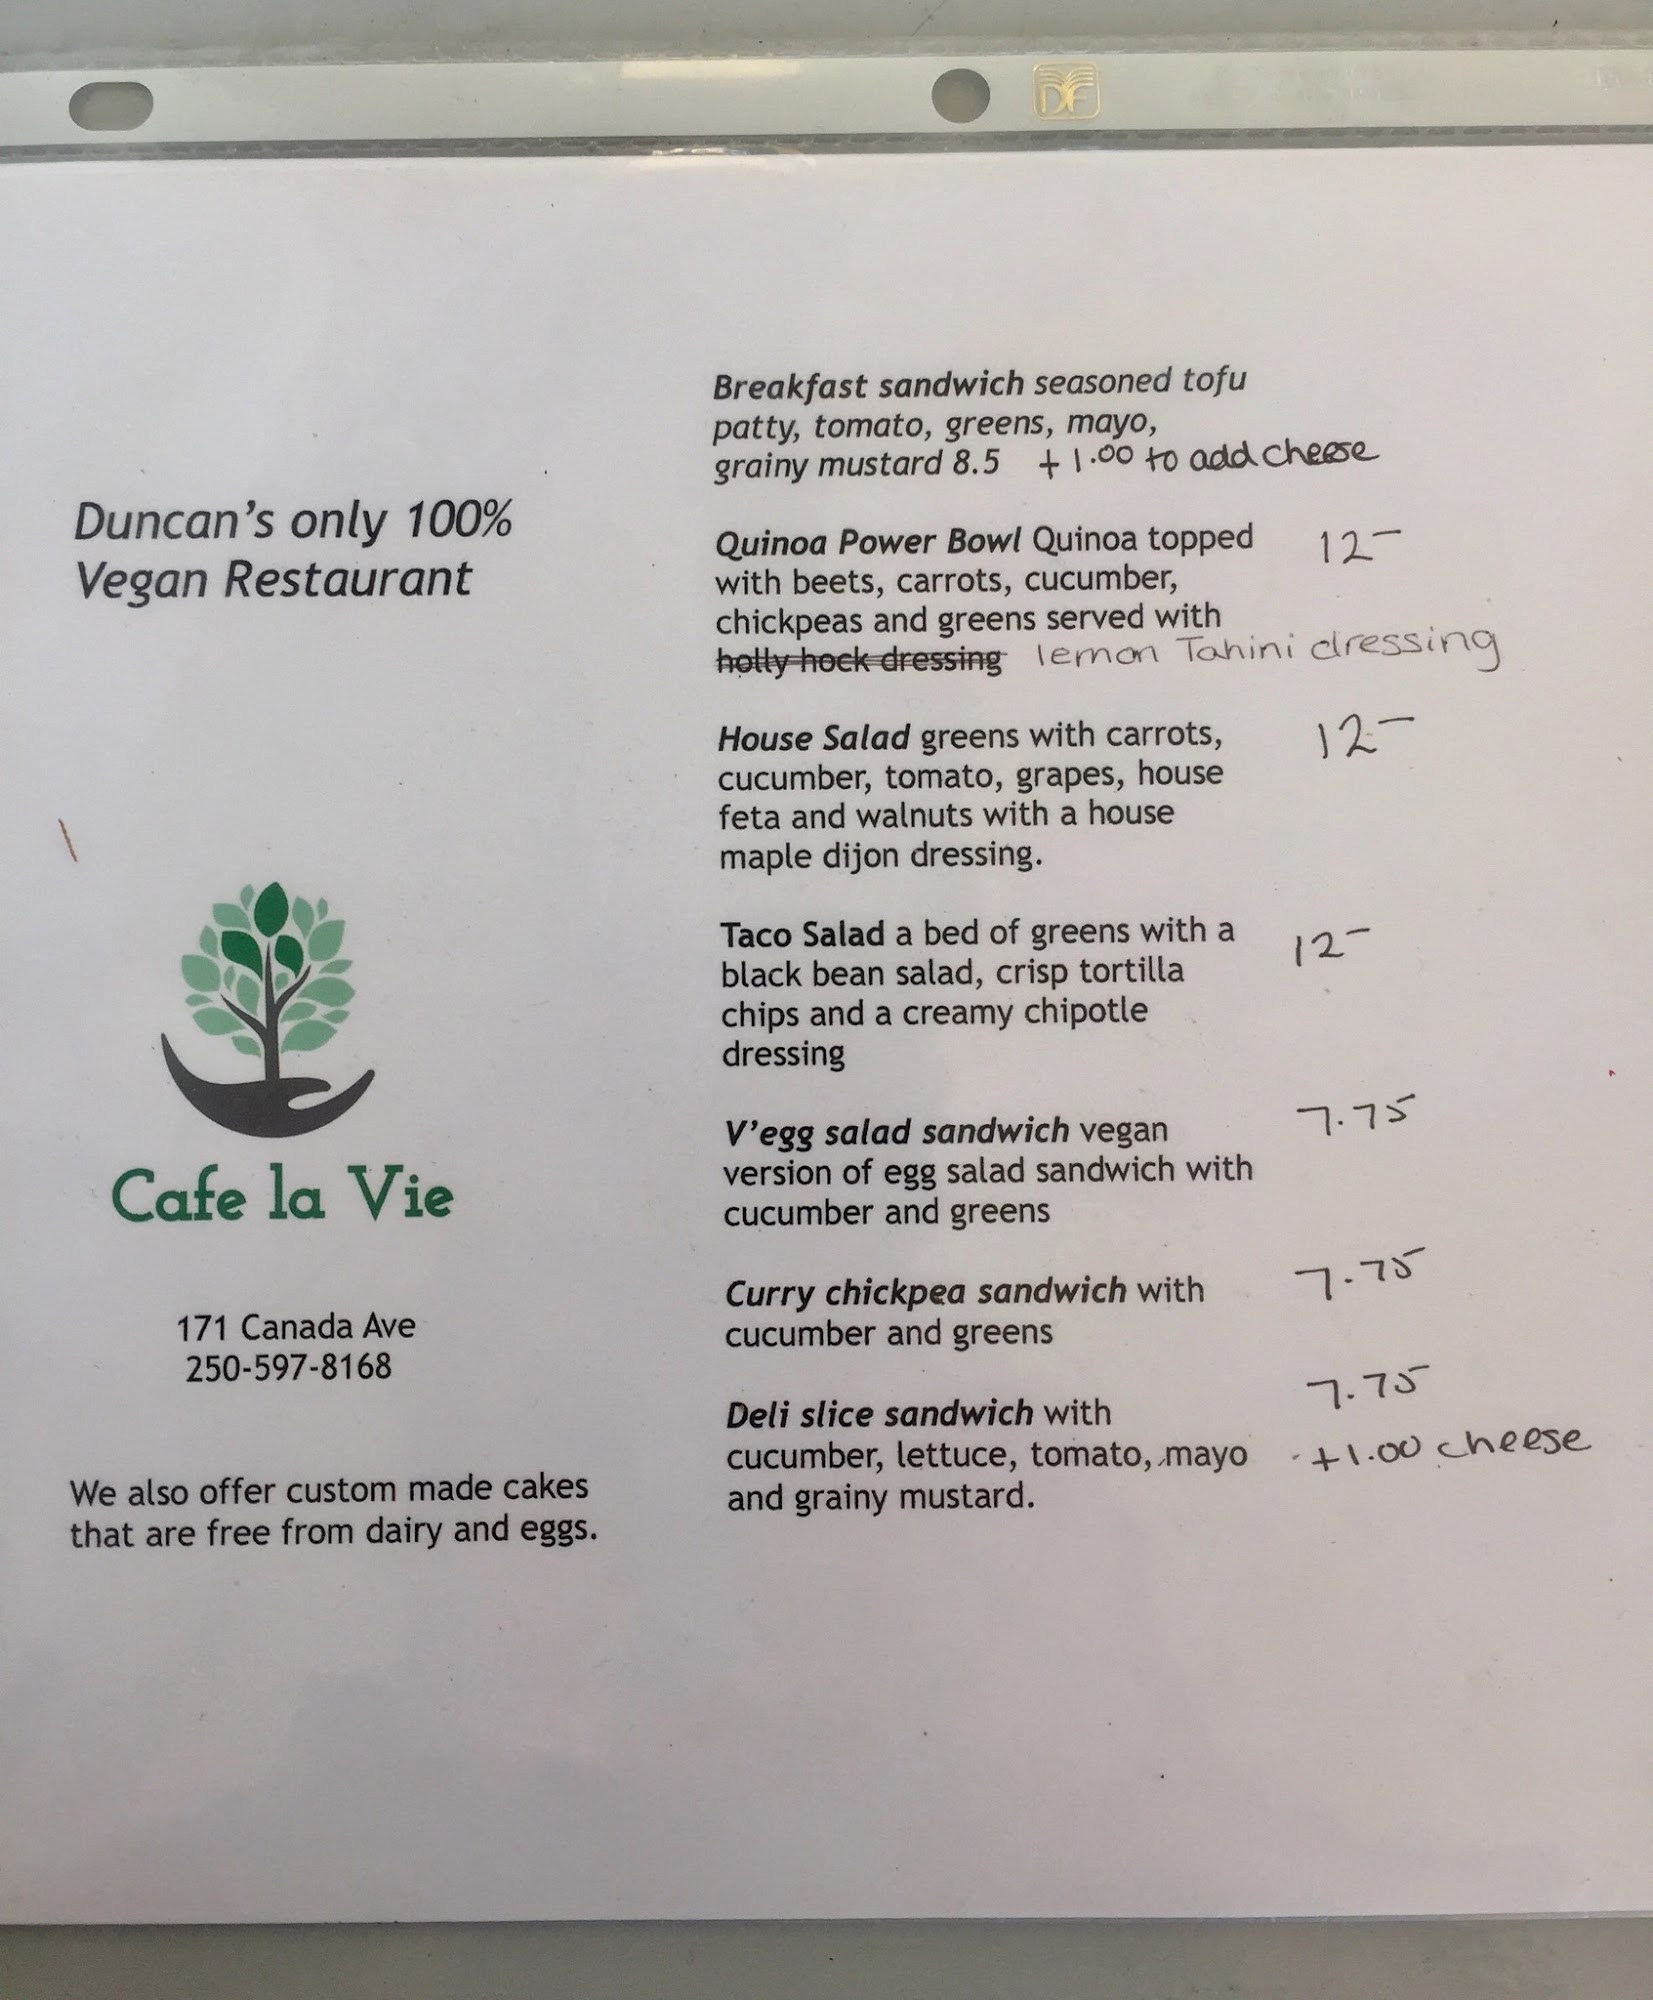 DF
Duncan's only 100%
Vegan Restaurant
Cafe la Vie
171 Canada Ave
250-597-8168
We also offer custom made cakes
that are free from dairy and eggs.
Breakfast sandwich seasoned tofu
patty, tomato, greens, mayo,
grainy mustard 8.5 +1.00 to add cheese
Quinoa Power Bowl Quinoa topped 12-
with beets, carrots, cucumber,
chickpeas and greens served with
holly hock dressing lemon Tahini dressing
House Salad greens with carrots, 12-
cucumber, tomato, grapes, house
feta and walnuts with a house
maple dijon dressing.
Taco Salad a bed of greens with a 12-
black bean salad, crisp tortilla
chips and a creamy chipotle
dressing
V'egg salad sandwich vegan 7.75
version of egg salad sandwich with
cucumber and greens
Curry chickpea sandwich with 7.75
cucumber and greens
Deli slice sandwich with 7.75
cucumber, lettuce, tomato, mayo +1.00 cheese
and grainy mustard.